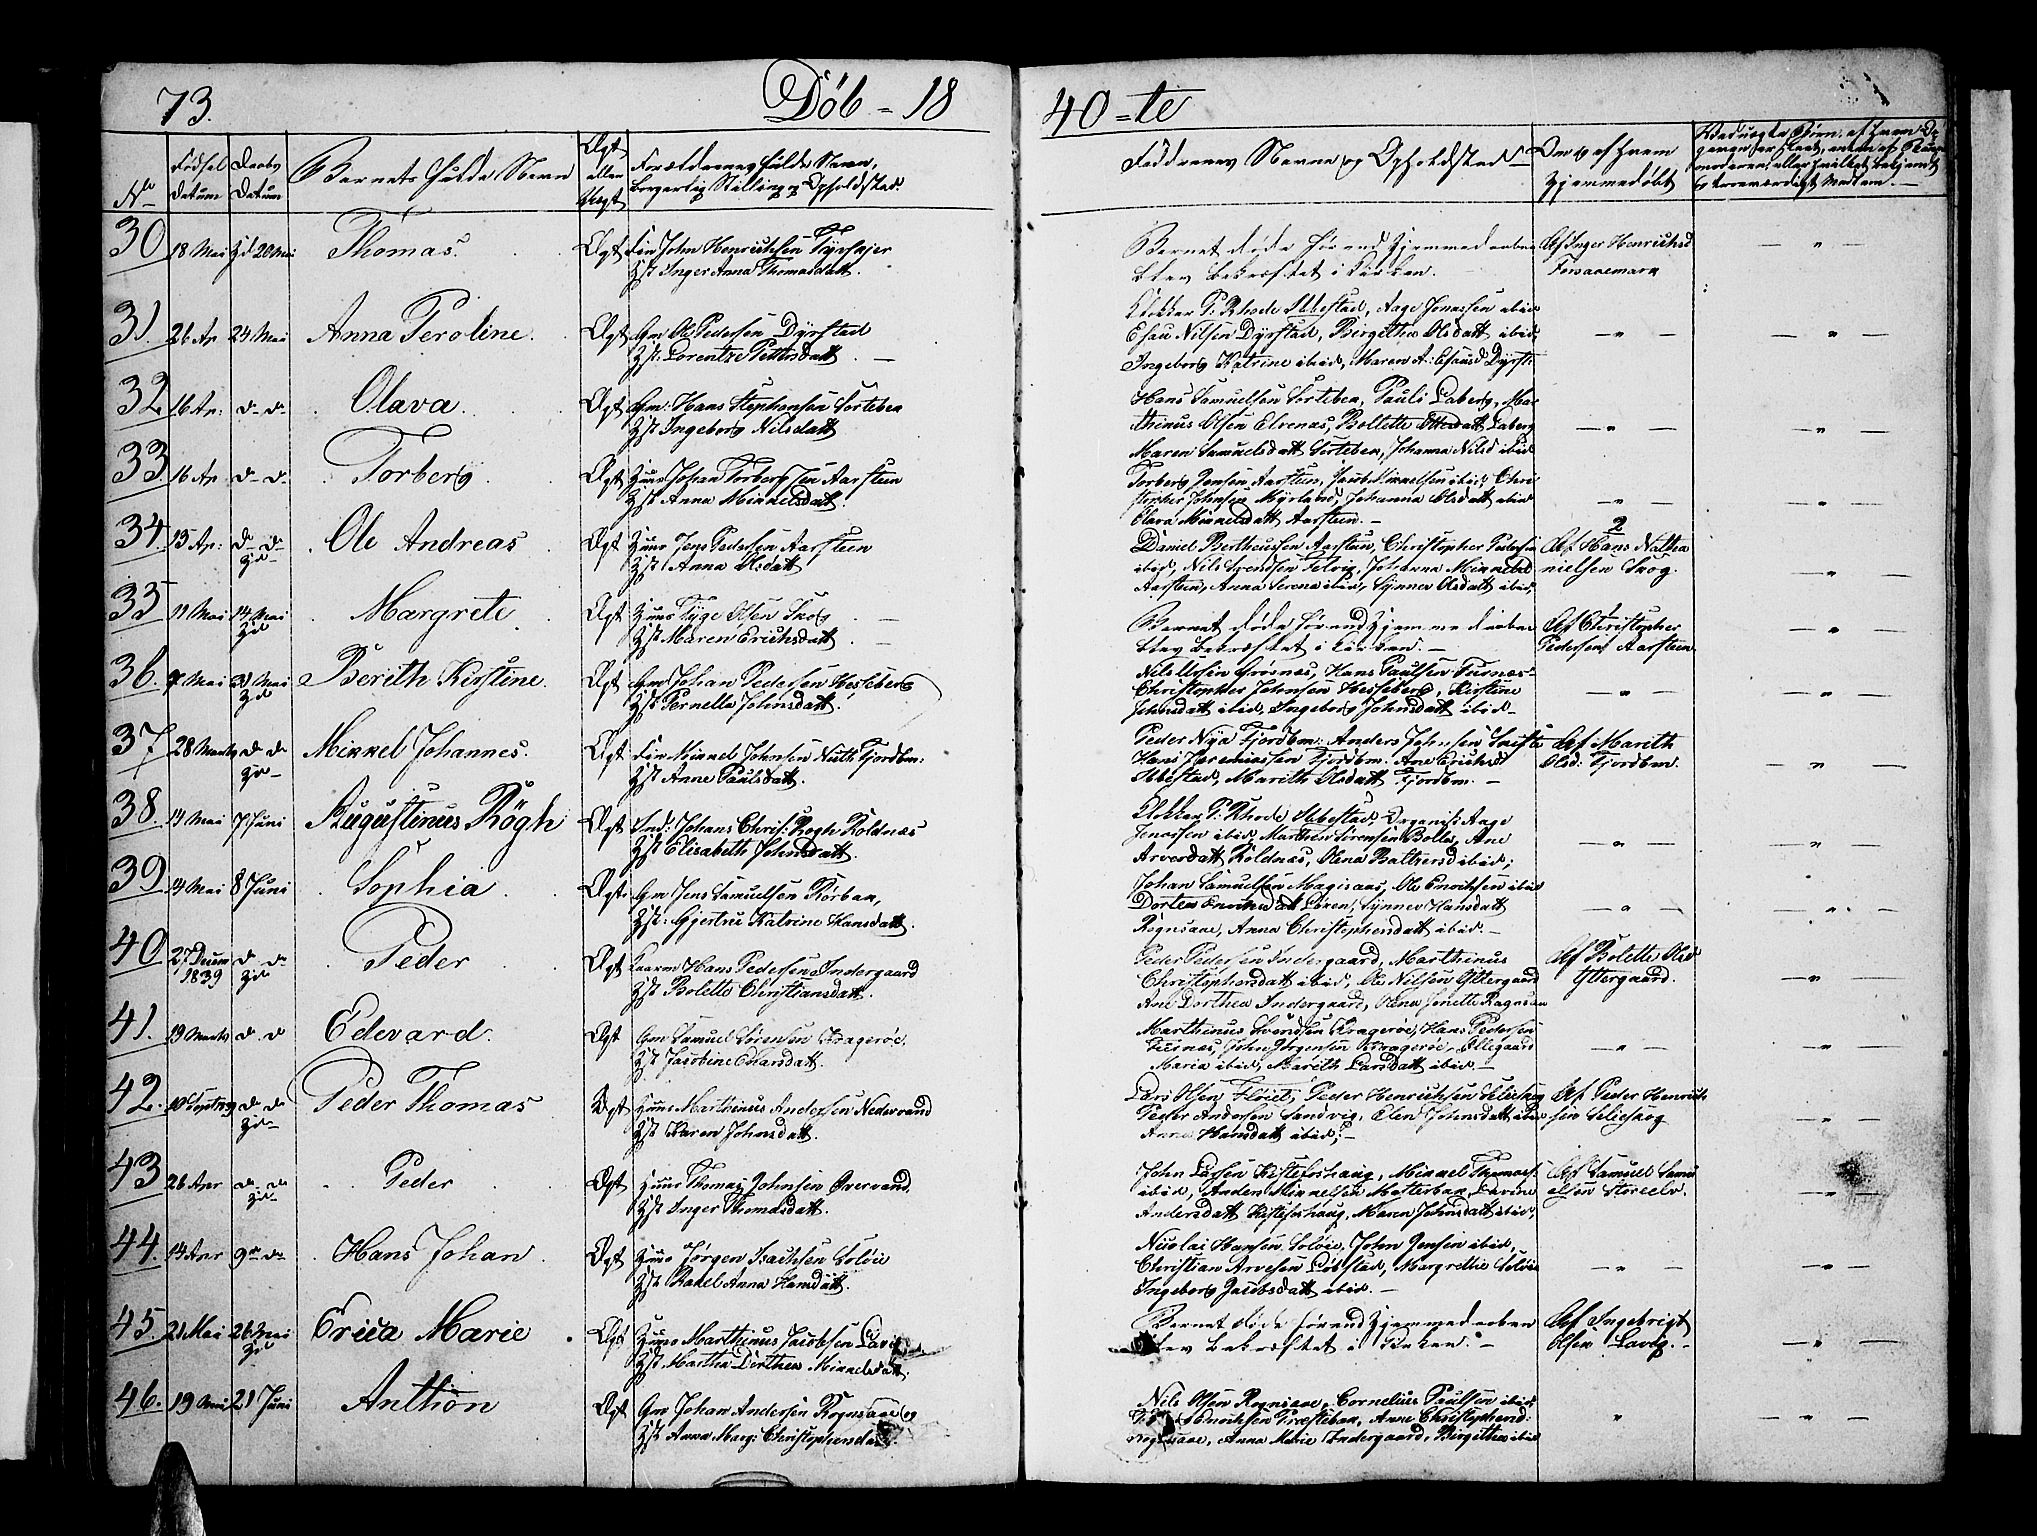 73.
Døb - 18
40 - te
No
Fødsel
Datum
Daabs
Datum
Barnets fulde Navn
Ægt
eller
Uægt
Forældrenes fulde Navn,
borgerlig Stilling og Opholdsted.
Faddrenes Navne og Opholdsted
Om og af hvem
hjemmedøbt
30 18 Mai Hd 20 Mai Thomas. Ægt John Henrichsen
Hst Inger Anna Thomasdatt.
Barnet døde før end Hjemmedaaben
blev bekræftet i Kirken.
Af Inger Henrichsd
31. 26 Ap 24 Mai Anna Peroline. Ægt Gm Ole Pedersen Dyrstad
Hst: Lorentze Pettersdatt.
Klokker P: Rhode Ibbestad, Aage Jonassen ibid
Esau Nilsen Dyrstad, Birgitha Olsdatt ibid,
Ingeborg Katrine ibid, Maren A: Esausd Dyrst:
32 16 Ap: d- d- Olava. Ægt Gm: Hans Stephansen Sorteben
Hst Ingeborg Nilsdatt
Hans Samuelsen Sorteben, Pauli Laberg, Mar
thinus Olsen Elvenæs, Bollette Ottersdatt Laberg
Maren Samuelsdatt Sorteben, Johanna Nilsd ibid
33. 16 Ap d- d- Torberg. Ægt Huus Johan Torbergsen Aarsteen
Hst Anna Mikkelsdatt.
Torberg Jensen Aarsteen, Jacob Mikkelsen ibid, Chri
stopher Johnsen Myrland, Johanna Olsdatt ibid
Olava Mikkelsdatt Aarsteen.
34. 13 Ap: d- d- Hd Ole Andreas Ægt Huus Jens Pedersen Aarsteen
Hst: Anna Olsdatt
Daniel Bertheussen Aarsteen, Christopher Pedersen
ibid, Nils Svendsen Falvig, Johanna Mikkelsd
Aarsteen, Anna Serena ibid, Synnev Olsdatt ibid,
Af Hans Natha
nielsen Skog.
35 11 Mai 14 Mai Hd Margrete Ægt Huus Tyge Olsen Skog
Hst Maren Erichsdatt.
Barnet døde før end Hjemmedaaben
blev bekræftet i Kirken.
Af Christopher
Pedersen Aarsteen
36. 7 Mai 31 Mai Hd Berith Kirstine. Ægt Gm Johan Pedersen Hesleberg
Hst Pernella Johnsdatt.
Nils Grøsnæs, Hans Paulsen Furnæs
Christopher Johnsen Hesseberg, Kirstine
Johnsdatt ibid, Ingeborg Johnsdatt ibid
37 28 Marts d- d- Hd- Mikkel Johannes. Ægt Mikkel Johnsen Fjordbn:
Hst Anne Paulsdatt.
Peder Nya Fjordbn: Anders Johnsen
Hans Jeremiassen Fjordbn. Ane Erichsd
Ibbestad, Marith Olsdatt Fjordbn.
Af Marith
Olsd: Fjordbn.
38. 14 Mai 7 Juni Augustinus Rögh Ægt Ind: Johans Chris: Rogh Roldnæs
Hst Elisabeth Johnsdatt.
Klokker P: Rhode Ibbestad, Organist Aage
Jonassen ibid, Marthin Sørensen Bolla, Ane
Arvesdatt Roldnæs, Olena Baltzersd ibid,
39. 14 Mai 8 Juni Sophia Ægt. Gm Jens Samuelsen Rørbak,
Hst: Gjertru Katrine Hansdatt.
Johan Samuelsen Magisaas, Ole Enochsen ibid
Dortea Enochsdatt Løken, Synnev Hansdatt
Rognsaae, Anna Christophersdatt ibid.
40 27 Decem 1839 d- d- Hd Peder Ægt Hans Pedersen Indergaard
Hst Bolette Christiansdatt.
Peder Pedersen Indergaard, Marthinus
Christophersdatt ibid, Ole Nilsen Yttergaard
Ane Dorthea Indergaard, Olena Jonette Rognsaa
Af Bolette Olsd
Yttergaard.
41. 19 Marts d- d Edevard. Ægt Gm Samuel Sørensen Kragerøe.
Hst Jacobine Edisdatt.
Marthinus Svendsen Kragerøe, Hans Pedersen
John Jørgensen Kragerøe, Ollegaard
Maria ibid, Marith Larsdatt ibid.
42. d- d- Hd- Peder Thomas Ægt Huus Marthinus Andersen Nedervand
Hst Karen Johnsdatt.
Lars Olsen Peder Henrichsen Seljeskog
Peder Andersen Sandvig, Elen Johnsdatt ibid
Anna Hansdatt ibid,
Af Peder Henrich
sen Seljeskog
43 26 Apr d- d- Hd- Peder Ægt Huus Thomas Johnsen Overvand.
Hst Inger Thomasdatt.
John Larsen Kistefoshaug, Mikkel Thomess.
ibid, Anders Mikkelsen Mølterbak, Lavine
Andersdatt Kistefoshaug, Maren Johnsdatt ibid,
Af Samuel Samu
elsen Storeelv.
44. 14 Apr 9de d- Hans Johan Ægt Huus Jørgen Isachsen Soløie
Hst Rakel Anna Hansdatt.
Nicolai Hansen Soløie, John Jensen ibid,
Christian Arvesen Løbstad, Margrethe Soløie
Ingeborg Jacobsdatt ibid.
45. 21 Mai 26 Mai Hd Erica Marie Ægt Huus Marthinus Jacobsen Lavig
Hst Martha Dorthea Mikkelsdatt.
Barnet døde før end Hjemmedaaben
blev bekræftet i Kirken.
Af Ingebrigt
Olsen Lavig.
46. 19 Mai 21 Juni Anthon Ægt Gm Johan Andersen Rognsaae
Hst Anna Marg: Christophersdatt.
Nils Olsen Rognsaae, Cornelius Paulsen ibid,
Enochsen Præsteba, Anne Christophersd:
Rognsaae, Anna Marie Indergaard, Birgitha ibid